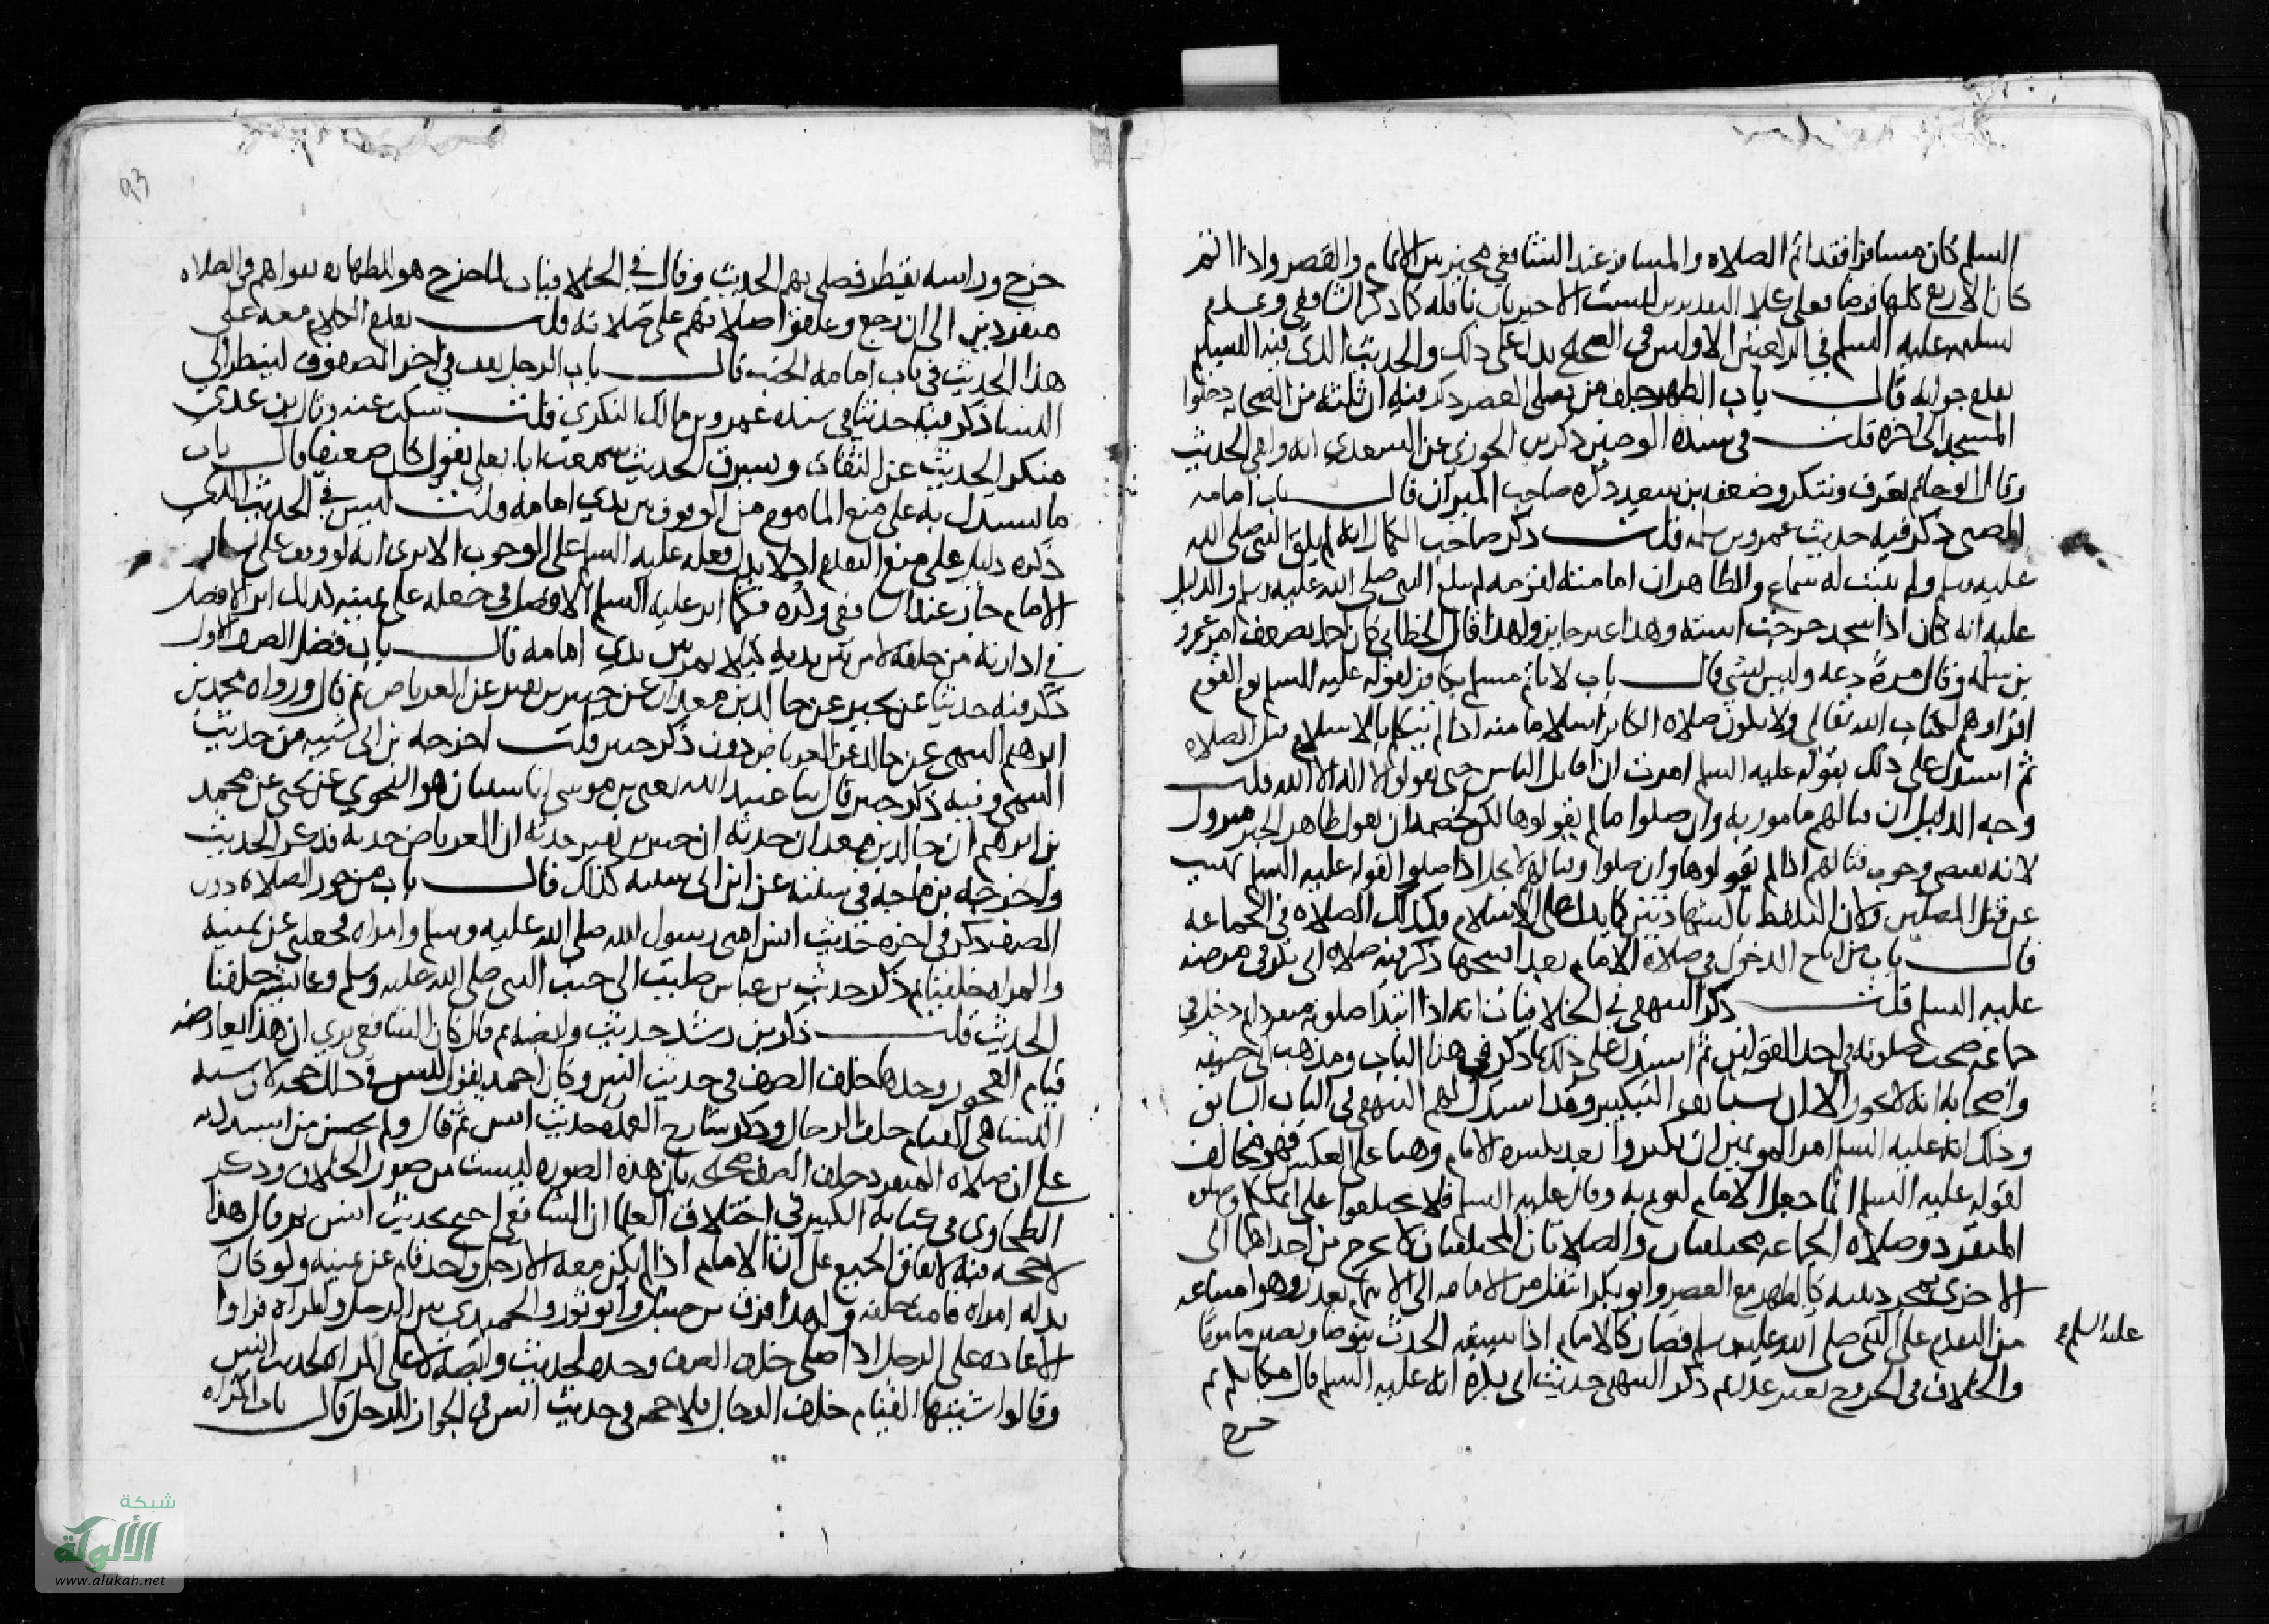 السلم كان مسافرا فقد اتم الصلاة والمسافر عند الشافعي مخير بين الاتمام والقصر واذا اتم
كان الاربع كلها فرضا فعلى كلا التقديرين ليست الاخيرتان نافلة كما ذكر الشافعي وعدم
تسليمه عليه السلم في الركعتين الاوليين في الصحيح يدل على ذلك والحديث الذي فيه التسليم
تقدم جوابه قال باب الظهر خلف من يصلي العصر ذكر فيه ان ثلثة من الصحابة دخلوا
المسجد الى اخره قلت في سنده الوضين ذكر بن الجوزي عن السعدي انه واهي الحديث
وقال ابو حاتم تعرف وتنكر وضعفه بن سعيد ذكره صاحب الميزان قال باب امامة
الصبي ذكر فيه حديث عمرو بن سلمه قلت ذكر صاحب الكمال انه لم يلق النبي صلى الله
عليه وسلم ولم يثبت له سماع والظاهر ان امامته لقومه لم تبلغ النبي صلى الله عليه وسلم والدليل
عليه انه كان اذا سجد خرجت استه وهذا غير جايز ولهذا قال الخطابي كان احمد يضعف امر عمرو
بن سلمه وقال مرة دعه وليس بشي قال باب لا ياتم مسلم بكافر لقوله عليه السلم يوم القوم
اقراوهم لكتاب الله تعالى ولا يكون صلاة الكافر اسلاما منه اذا لم يتكلم بالاسلام قبل الصلاه
ثم استدل على ذلك بقوله عليه السلم امرت ان اقاتل الناس حتى يقولوا لا اله الا الله قلت
وجه الدليل ان قتالهم مامور به وان صلوا ما لم يقولوها لكن لخصمه ان يقول ظاهر الخبر متروك
لانه يقتضي وجوب قتالهم اذا لم يقولوها وان صلوا وقتالهم لا يحل اذا صلوا لقوله عليه السلم نهيت
عن قتل المصلين ولان التلفظ بالشهادتين كما يدل على الاسلام فكذلك الصلاة في الجماعة
قال باب من اباح الدخول في صلاة الامام بعد ما افتتحها ذكر فيه صلاة ابي بكر في مرضه
عليه السلم قلت ذكر البيهقي في الخلافيات انه اذا ابتدا صلوته منفردا ثم دخل في
جماعة صحت صلوته في احد القولين ثم استدل على ذلك بما ذكر في هذا الباب ومذهب ابي حنيفة
واصحابه انه لا يجوز الا ان يستانف التكبير وقد استدل لهم البيهقي في الباب السابق
وذلك انه عليه السلم امر المؤتمين ان يكبروا بعد تكبير الامام وهنا على العكس فهو مخالف
لقوله عليه السلم انما جعل الامام ليوتم به وقال عليه السلم فلا تختلفوا على امامكم وصلاة
المنفرد وصلاة الجماعة مختلفتان والصلاتان المختلفتان لا يخرج من احداهما الى
الاخرى بمجرد نيته كالظهر مع العصر وابو بكر انتقل من الامامة الى الايتمام بعذر وهو امتناعه
من التقدم على النبي صلى الله عليه وسلم فصار كالامام اذا سبقه الحدث يتوضا ويصير ماموما
عليه السلم
والخلاف في الخروج بغير عذر ثم ذكر البيهقي حديث ابي بكرة انه عليه السلم قال مكانكم ثم
خرج
93
خرج وراسه يقطر فصلى بهم الحديث وقال في الخلافيات لما خرج هو للطهارة بقوا هم في الصلاه
منفردين الى ان رجع وعلقوا صلاتهم على صلاته قلت تقدم الكلام معه على
هذا الحديث في باب امامة الجنب قال باب الرجل يقف في اخر الصفوف لينظر الى
النسا ذكر فيه حديثا في سنده عمرو بن مالك النكري قلت سكت عنه وقال بن عدي
منكر الحديث عن الثقات ويسرق الحديث سمعت ابا يعلى يقول كان ضعيفا قال باب
ما يستدل به على منع الماموم من الوقوف بين يدي امامه قلت ليس في الحديث الذي
ذكره دليل على منع التقدم اذ لا يدل فعله عليه السلم على الوجوب الا ترى انه لو وقف على يسار
الامام جاز عند الشافعي وكره فكما اثر عليه السلم الافضل في جعله على يمينه كذلك اثر الافضل
في ادارته من خلفه لا من بين يديه ليلا يمر بين يدي امامه قال باب فضل الصف الاول
ذكر فيه حديثا عن بحير عن خالد بن معدان عن جبير بن نفير عن العرباض ثم قال ورواه محمد بن
ابرهيم التيمي عن خالد عن العرباض دون ذكر جبير قلت اخرجه بن ابي شيبه من حديث
التيمي وفيه ذكر جبير فقال ثنا عبيد الله يعني بن موسى انا شيبان هو النحوي عن يحيى عن محمد
بن ابرهيم ان خالد بن معدان حدثه ان جبير بن نفير حدثه ان العرباض حدثه فذكر الحديث
واخرجه بن ماجة في سننه عن ابن ابي شيبه كذلك قال باب من جوز الصلاة دون
الصف ذكر في اخره حديث انس امني رسول الله صلى الله عليه وسلم وامراة فجعلني عن يمينه
والمراة خلفنا ثم ذكر حديث بن عباس صليت الى جنب النبي صلى الله عليه وسلم وعايشة خلفنا
الحديث قلت ذكر بن رشد حديث وابصة ثم قال كان الشافعي يرى ان هذا يعارضه
قيام العجوز وحدها خلف الصف في حديث انس وكان احمد يقول ليس في ذلك حجة لان سنة
النسا هي القيام خلف الرجال وذكر شارح العمدة حديث انس ثم قال ولم يحسن من استدل به
على ان صلاة المنفرد خلف الصف صحيحة بان هذه الصوره ليست من صور الخلاف وذكر
الطحاوي في كتابه الكبير في اختلاف العلما ان الشافعي احتج بحديث انس ثم قال هذا
لا حجة فيه لاتفاق الجميع على ان الامام اذا لم يكن معه الا رجل واحد قام عن يمينه ولو كان
بدله امراة قامت خلفه ولهذا فرق بن حنبل وابو ثور والحميدي بين الرجل والمراة فراوا
الاعادة على الرجل اذا صلى خلف الصف وحده لحديث وابصة لا على المراة لحديث انس
وقالوا سنتها القيام خلف الرجال فلا حجة في حديث انس في الجواز للرجل قال باب المراه
شبكة
الألوكة
www.alukah.net